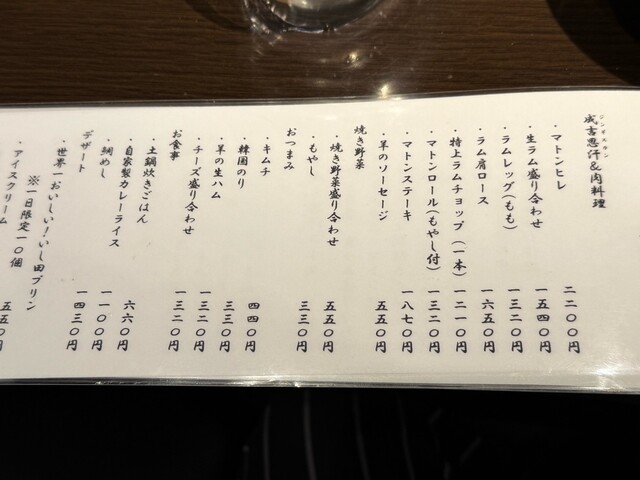 ジンギスカン
成吉思汗&肉料理
・マトンヒレ 二二〇〇円
・生ラム盛り合わせ 一五四〇円
・ラムレッグ(もも) 一三二〇円
・ラム肩ロース 一六五〇円
・特上ラムチョップ(一本) 一二一〇円
・マトンロール(もやし付) 一三二〇円
・マトンステーキ 一八七〇円
・羊のソーセージ 五五〇円
焼き野菜
・焼き野菜盛り合わせ 五五〇円
・もやし 三三〇円
おつまみ
・キムチ 四四〇円
・韓国のり 三三〇円
・羊の生ハム 一三二〇円
・チーズ盛り合わせ 一三二〇円
お食事
・土鍋炊きごはん 六六〇円
・自家製カレーライス 一一〇〇円
・鯛めし 一四三〇円
デザート
・世界一おいしい!いし田プリン
※一日限定一〇個 五五〇円
・アイスクリーム